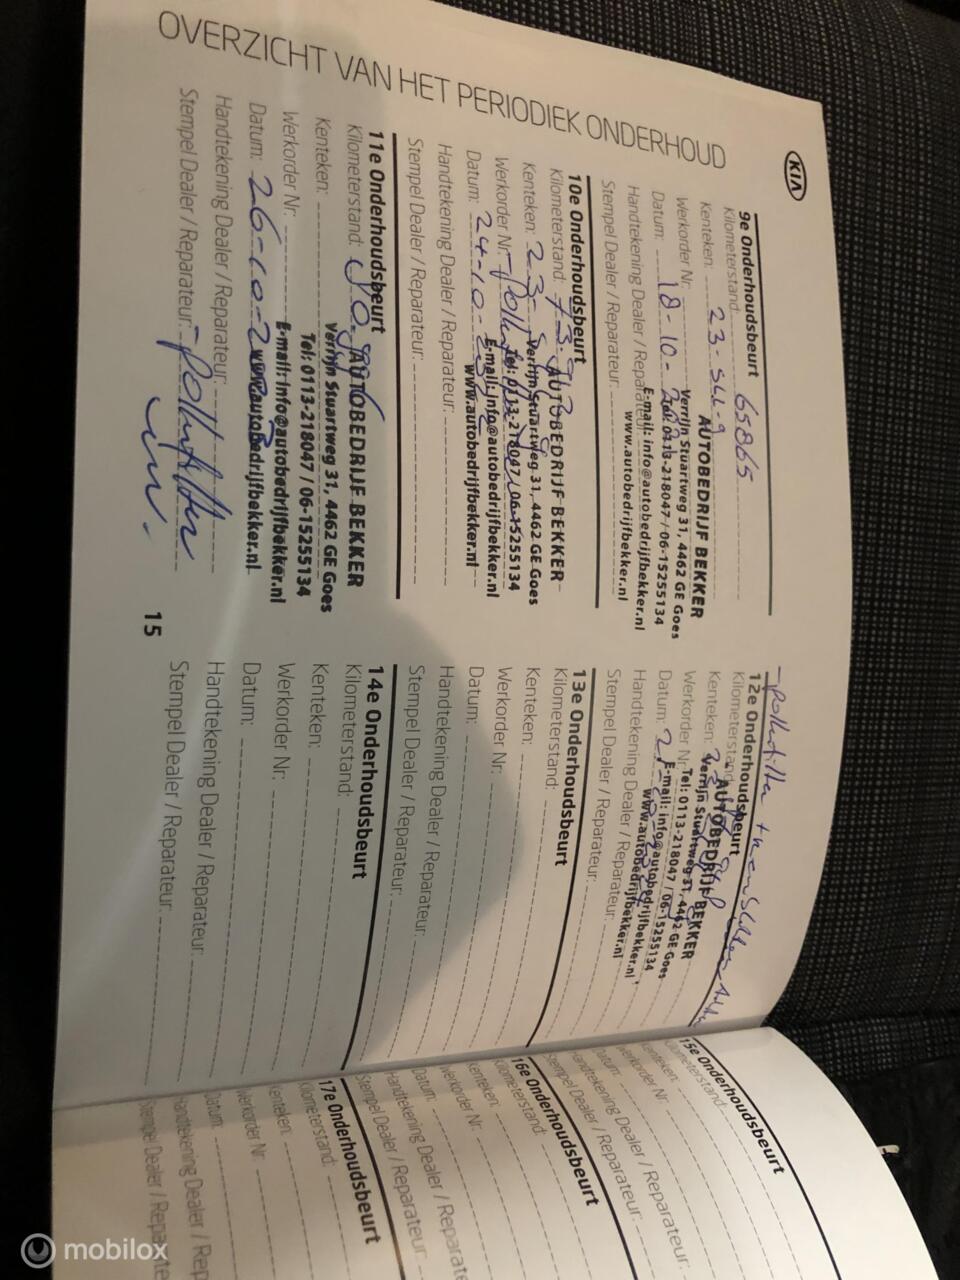 OVERZICHT VAN HET PERIODIEK ONDERHOUD
KIA
9e Onderhoudsbeurt
Kilometerstand: 65865
Kenteken: 23-SLL-9
Werkorder Nr:
Datum: 18-10-
Handtekening Dealer / Reparateur:
Stempel Dealer / Reparateur:
AUTOBEDRIJF BEKKER
Verrijn Stuartweg 31, 4462 GE Goes
Tel: 0113-218047 / 06-15255134
E-mail: info@autobedrijfbekker.nl
www.autobedrijfbekker.nl
10e Onderhoudsbeurt
Kilometerstand:
Kenteken: 23-
Werkorder Nr:
Datum: 24-10-
Handtekening Dealer / Reparateur:
Stempel Dealer / Reparateur:
AUTOBEDRIJF BEKKER
Verrijn Stuartweg 31, 4462 GE Goes
Tel: 0113-218047 / 06-15255134
E-mail: info@autobedrijfbekker.nl
www.autobedrijfbekker.nl
11e Onderhoudsbeurt
Kilometerstand:
Kenteken:
Werkorder Nr:
Datum: 26-10-2
Handtekening Dealer / Reparateur:
Stempel Dealer / Reparateur: Pollenfilter
AUTOBEDRIJF BEKKER
Verrijn Stuartweg 31, 4462 GE Goes
Tel: 0113-218047 / 06-15255134
E-mail: info@autobedrijfbekker.nl
www.autobedrijfbekker.nl
15
12e Onderhoudsbeurt
Kilometerstand:
Kenteken:
Werkorder Nr:
Datum:
Handtekening Dealer / Reparateur:
Stempel Dealer / Reparateur:
AUTOBEDRIJF BEKKER
Verrijn Stuartweg 31, 4462 GE Goes
Tel: 0113-218047 / 06-15255134
E-mail: info@autobedrijfbekker.nl
www.autobedrijfbekker.nl
13e Onderhoudsbeurt
Kilometerstand:
Kenteken:
Werkorder Nr:
Datum:
Handtekening Dealer / Reparateur:
Stempel Dealer / Reparateur:
14e Onderhoudsbeurt
Kilometerstand:
Kenteken:
Werkorder Nr:
Datum:
Handtekening Dealer / Reparateur:
Stempel Dealer / Reparateur:
15e Onderhoudsbeurt
Kilometerstand:
Kenteken:
Werkorder Nr:
Datum:
Handtekening Dealer / Reparateur:
Stempel Dealer / Reparateur:
16e Onderhoudsbeurt
Kilometerstand:
Kenteken:
Werkorder Nr:
Datum:
Handtekening Dealer / Reparateur:
Stempel Dealer / Reparateur:
17e Onderhoudsbeurt
Kilometerstand:
Kenteken:
Werkorder Nr
Datum:
Handtekening Dealer / Rep
Stempel Dealer / Repara
mobilox